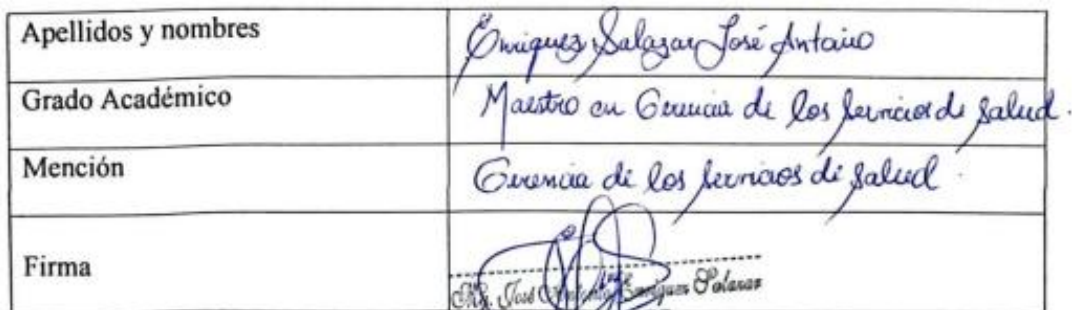 Apellidos y nombres
Enriquez Salazar José Antonio
Grado Académico
Maestro en Gerencia de los Servicios de Salud.
Mención
Gerencia de los servicios de salud.
Firma
Mg. José Antonio Enriquez Salazar